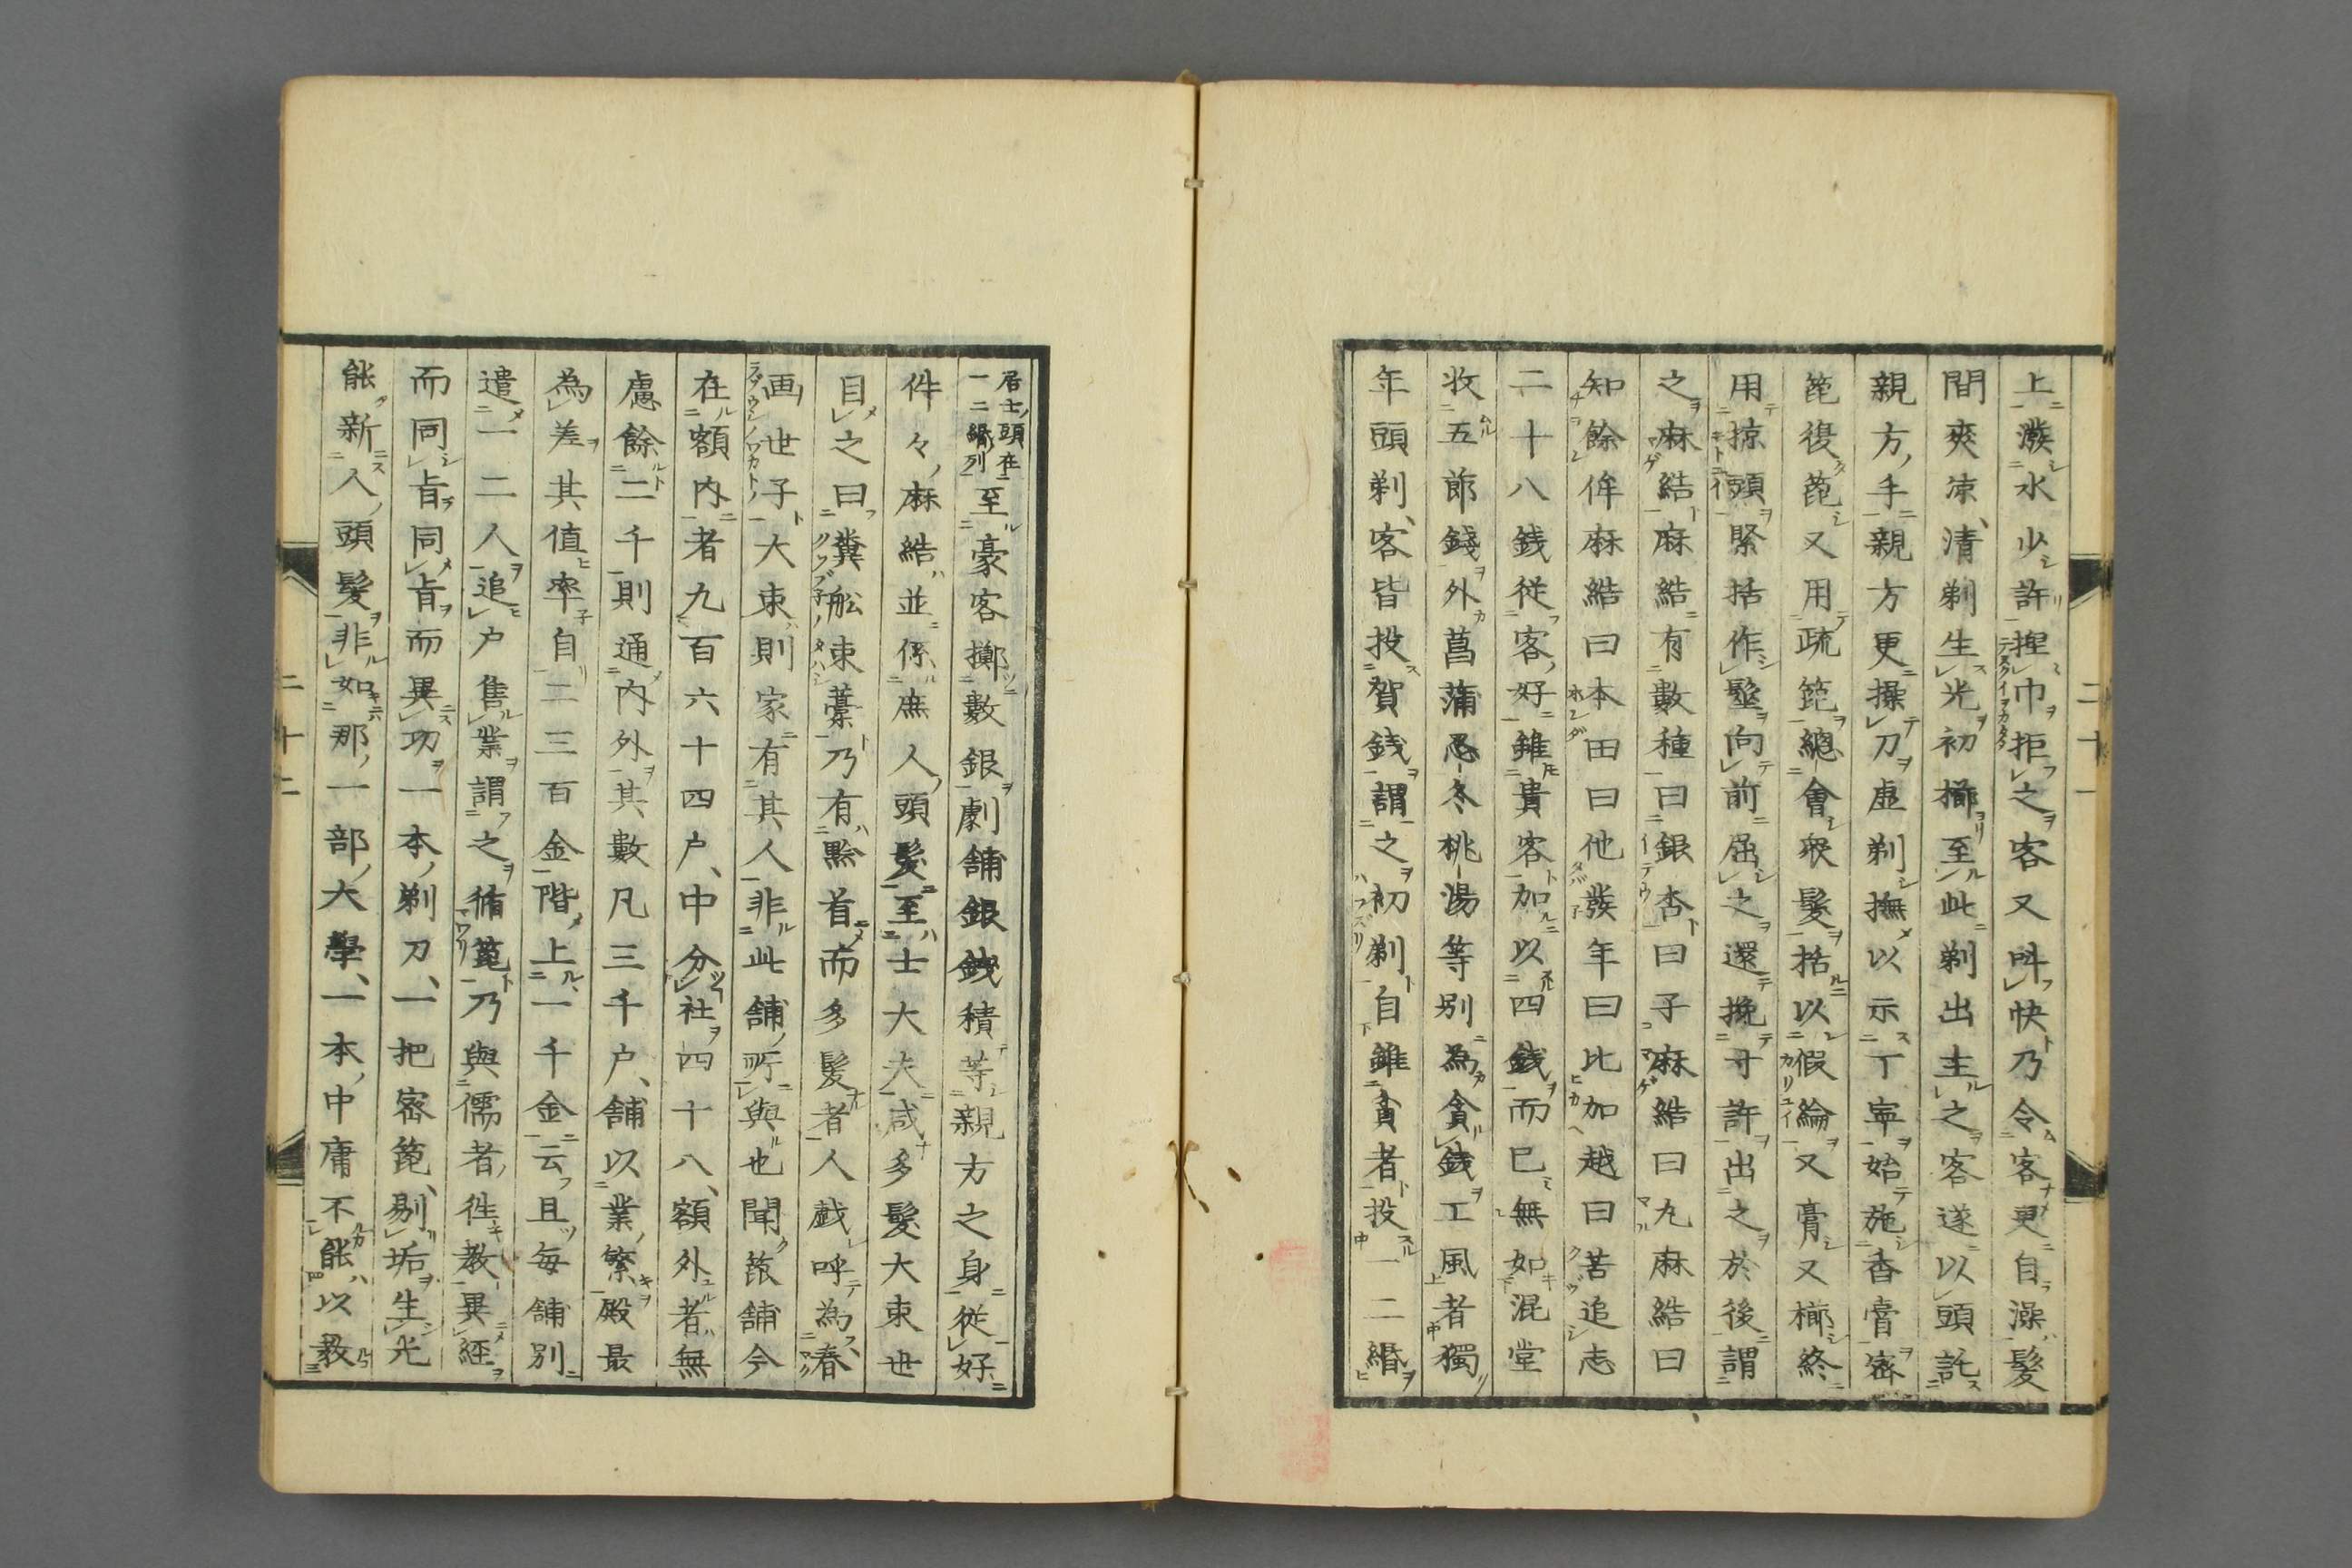 上潑水少許捏巾拒之客又呌快乃令客更自澡髮
間爽凉清剃生光初櫛至此剃出主之客遂以頭託
親方手親方更操刀虚剃撫以示丁寧始施香膏密
篦復篦又用疏篦總會衆髮括以假綸又膏又櫛終
用掠頭緊括作髷向前屈之還挽寸許出之於後謂
之麻結麻結有數種曰銀杏曰子麻結曰丸麻結曰
知餘侔麻結曰本田曰他潑年曰比加越曰苦追志
二十八銭従客好雖貴客加以四銭而已無如混堂
收五節錢外菖蒲忍冬桃湯等別為貪銭工風者獨
年頭剃客皆投賀銭謂之初剃自雖貧者投一二緡
二十一
居士頭在
一二緡列
至豪客擲數銀劇舗銀銭積等親方之身従好
件々麻結並係庶人頭髮至士大夫咸多髮大束世
目之曰糞舩束藁乃有黔首而多髮者人戯呼為春
画世子大束則家有其人非此舗所與也聞篦舗今
在額内者九百六十四戸中分社四十八額外者無
慮餘二千則通内外其數凡三千戸舗以業繁殿最
為差其値率自二三百金階上一千金云且毎舗別
遣一二人追戸售業謂之循篦乃與儒者徃教異經
而同旨同旨而異功一本剃刀一把密篦剔垢生光
能新人頭髮非如那一部大學一本中庸不能以教
二十二